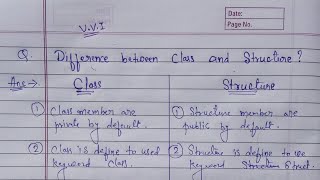 V.V.I
Date:
Page No.
Q. Difference between Class and Structure?
Ans :->. Class Structure
① Class member are
private by default.
① Structure member are
public by default.
② Class is define to used
keyword Class.
② Structure is define to use
keyword Struct.